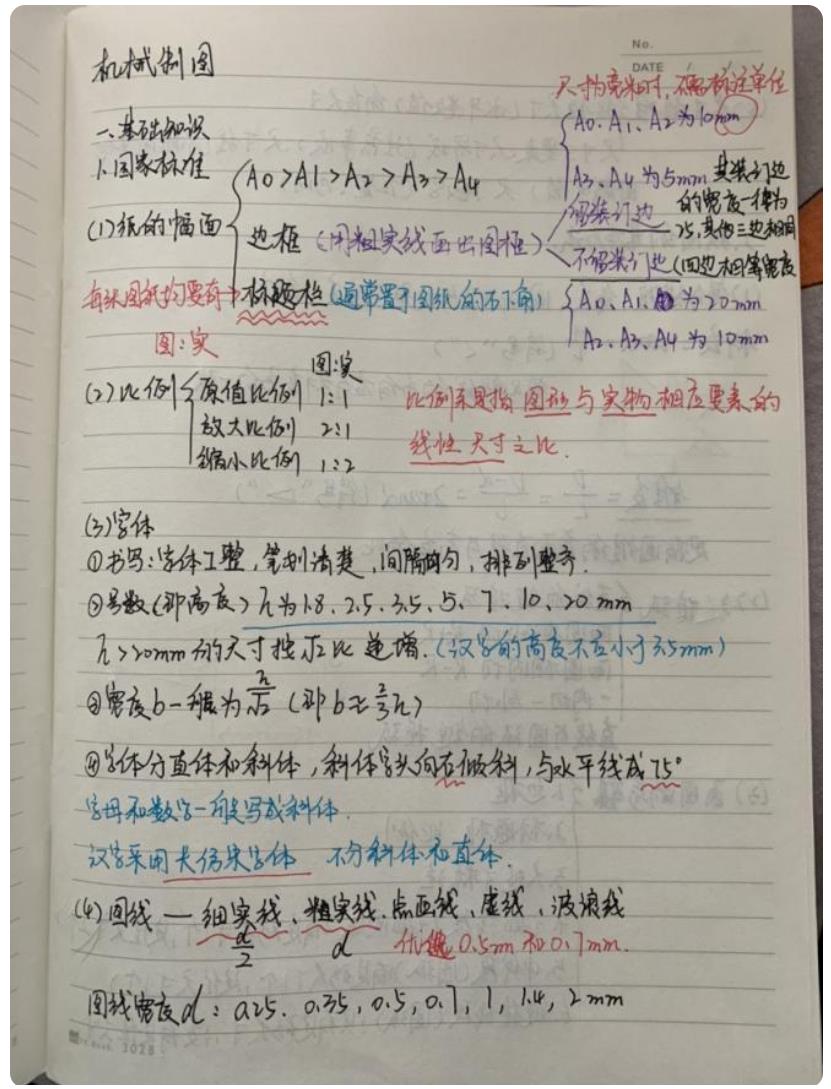 No.
DATE
机械制图
尺寸为毫米时，不需标注单位
一、基础知识
1.国家标准
A0、A1、A2为10mm
A0>A1>A2>A3>A4
A3、A4为5mm
其装订边的宽度一律为25，其他三边相同
(1)纸的幅面
边框(用粗实线画出图框)
留装订边
不留装订边(四边相等宽度
每张图纸均要有
标题栏(通常置于图纸的右下角)
A0、A1、为20mm
A2、A3、A4为10mm
图:实
图:实
(2)比例
原值比例 1:1
放大比例 2:1
缩小比例 1:2
比例系是指图形与实物相应要素的
线性尺寸之比.
(3)字体
①书写:字体工整,笔划清楚,间隔均匀,排列整齐.
②号数(即高度)h为1.8、2.5、3.5、5、7、10、20mm
h>20mm的尺寸按√2比递增.(汉字的高度不应小于3.5mm)
③宽度b一般为h/√2(即b≈2/3h)
④字体分直体和斜体,斜体字头向右倾斜,与水平线成75°
字母和数字一般写成斜体.
汉字采用长仿宋字体 不分斜体和直体.
(4)图线—细实线、粗实线、点画线、虚线、波浪线
d/2 d 优选0.5mm和0.7mm.
图线宽度d:0.25、0.35,0.5,0.7,1,1.4,2mm
3028